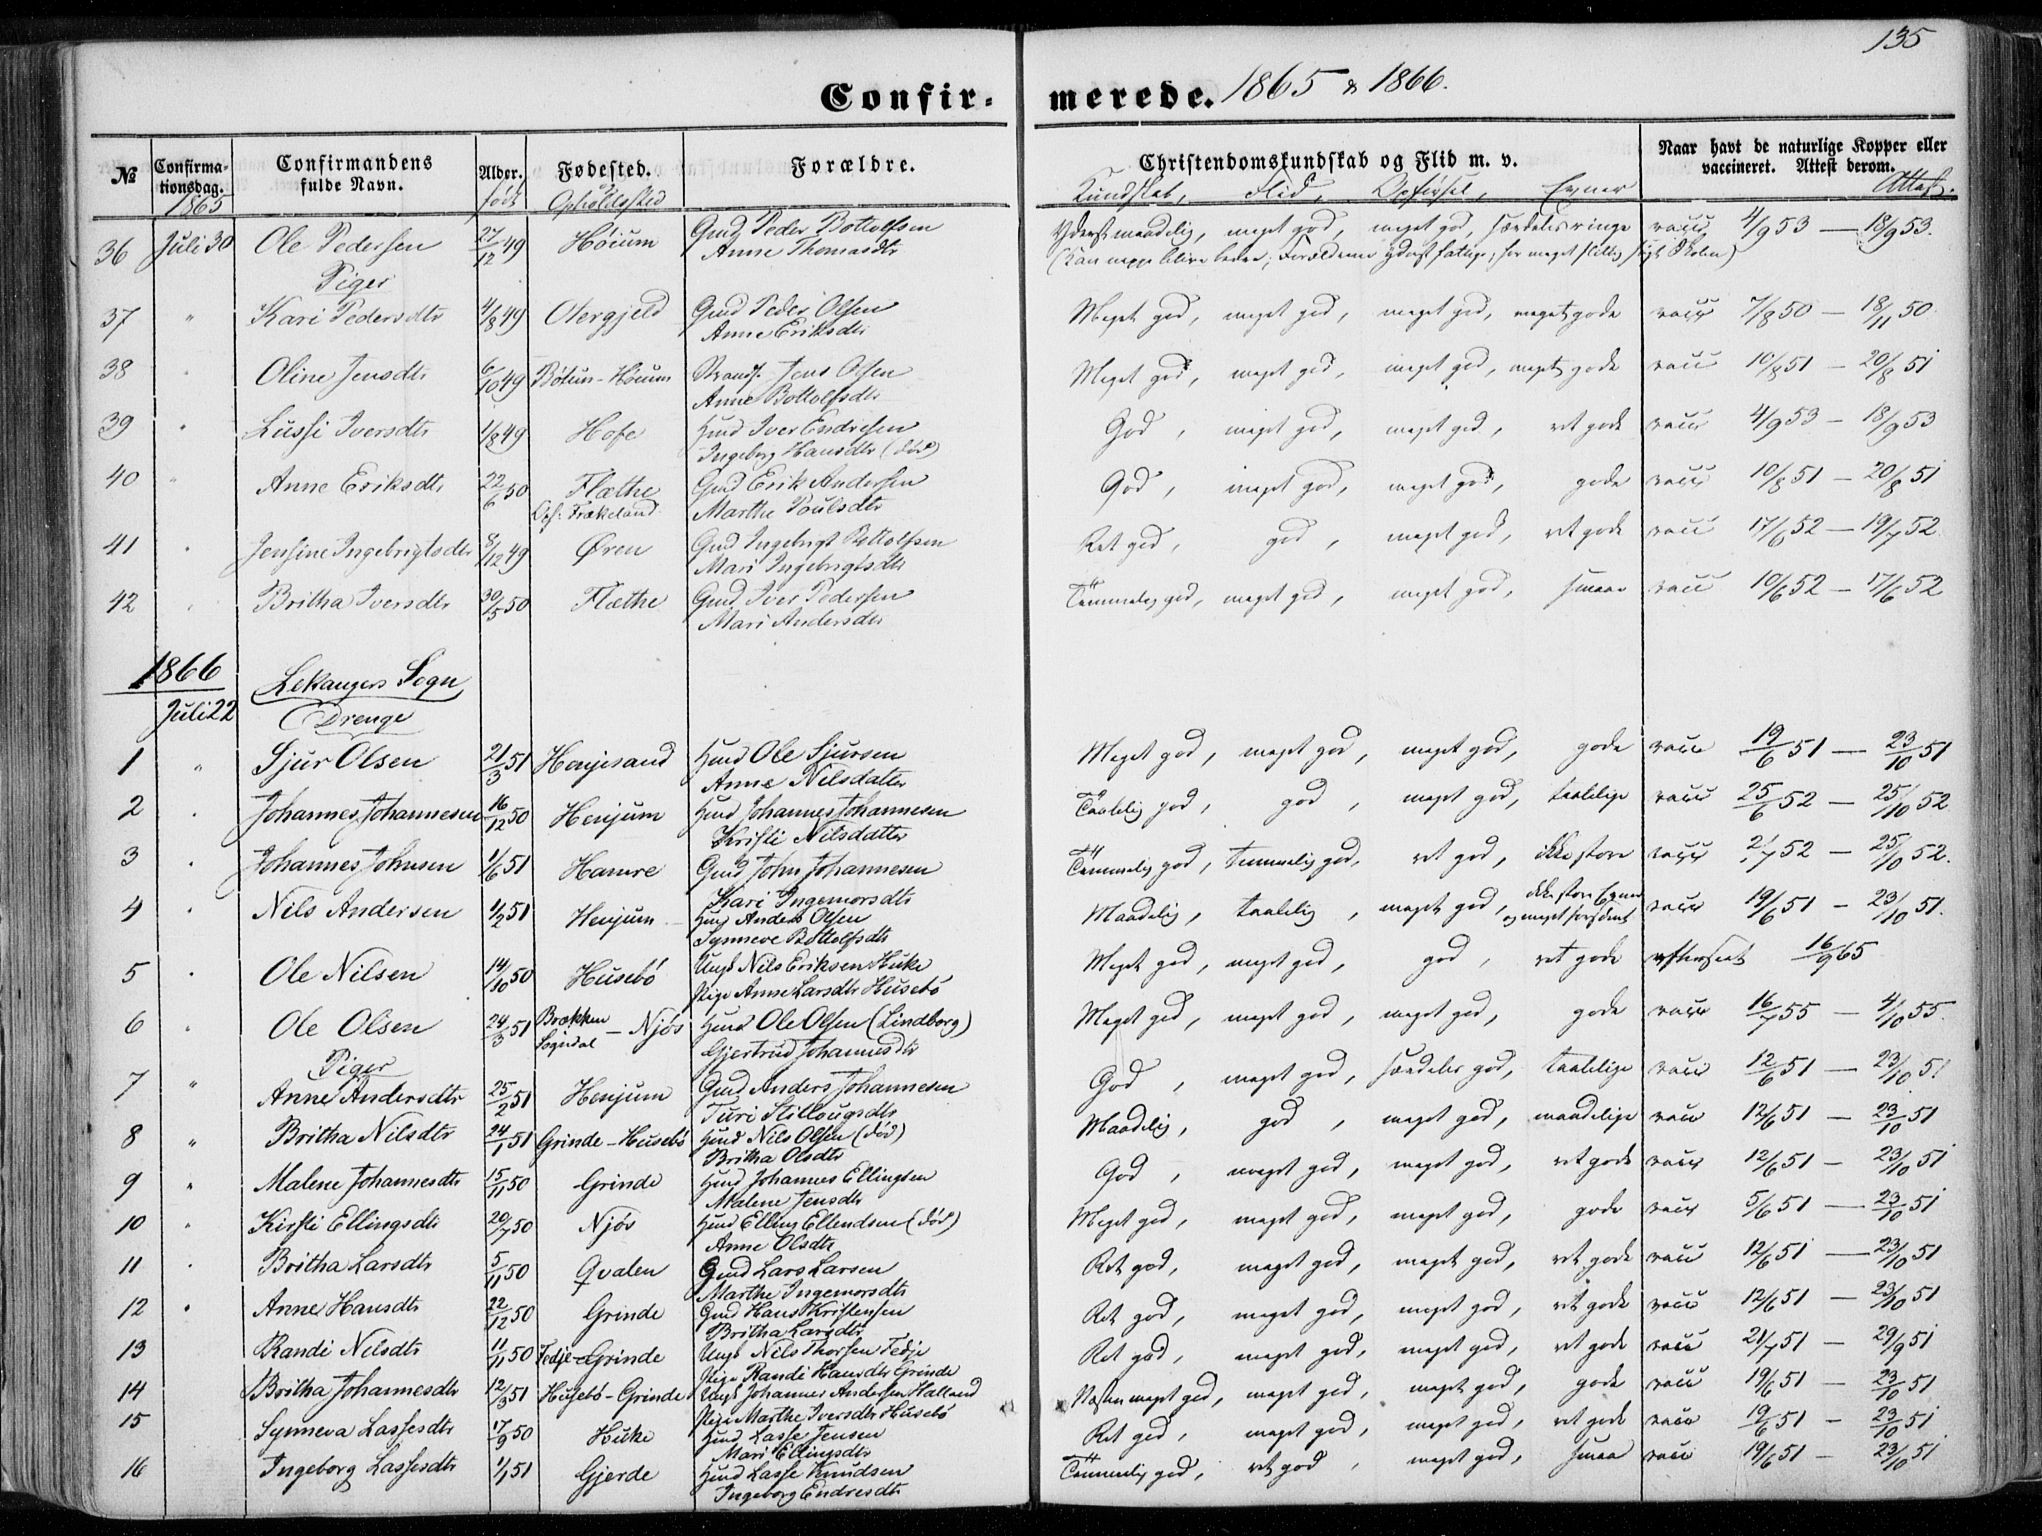 135
Confir- merede. 1865 & 1866.
№ Confirmationsdag. Confirmandens fulde Navn. Alder. Fødested. Forældre. Christendomskundskab og Flid m. v. Naar havt de naturlige Kopper eller vaccineret. Attest derom.
1865 født Opholdssted Kundskab, Flid, Opførsel, Evner Attest.
36 Juli 30 Ole Pedersen 27/12 49 Høium Gmd Peder Bottolfsen Yderst maadelig, meget god, meget god, særdeles ringe vacc 4/9 53 — 18/9 53.
Anne Thomasdtr (Kan neppe blive bedre; Forældrene yderst fattige; har meget flittig søgt Skolen)
Piger
37 " Kari Pedersdtr 4/8 49 Otergjeld Gmd Peder Olsen Meget god, meget god, meget god, meget gode vacc 7/8 50 — 18/11 50
Anne Eriksdtr
38 " Oline Jensdtr 6/10 49 Bøtun - Høium Strands. Jens Olsen Meget god, meget god, meget god, meget gode vacc 10/8 51 — 20/8 51
Anne Bottolfsdtr
39 " Lussi Iversdtr 1/8 49 Hofe Hmd Iver Endresen God, meget god, meget god, ret gode vacc 4/9 53 — 18/9 53
Ingeborg Hansdtr (død)
40 " Anne Eriksdtr 22/6 50 Flæthe Gmd Erik Andersen God, meget god, meget god, gode vacc 10/8 51 — 20/8 51
Oph. Frækeland Marthe Poulsdtr
41 " Jensine Ingebrigtsdtr 8/12 49 Øren Gmd Ingebrigt Bottolfsen Ret god, god, meget god, ret gode vacc 17/6 52 — 19/7 52.
Mari Ingebrigtsdtr
42 " Britha Iversdtr 30/5 50 Flæthe Gmd Iver Pedersen Temmelig god, meget god, meget god, smaa vacc 10/6 52 — 17/6 52
Mari Andersdtr
1866 Lekangers Sogn
Juli 22 Drenge
1 " Sjur Olsen 21/3 51 Henjesand Hmd Ole Sjursen Meget god, meget god, meget god, gode vacc 19/6 51 — 23/10 51
Anna Nilsdatter
2 " Johannes Johannesen 16/12 50 Henjum Hmd Johannes Johannesen Taalelig god, god, meget god, taalelige vacc 25/6 52 — 25/10 52
Kristi Nilsdatter
3 " Johannes Johnsen 1/6 51 Hamre Gmd John Johannesen Temmelig god, temmelig god, ret god, ikke store vacc 2/7 52 — 25/10 52.
Kari Ingemorsdtr
4 " Nils Andersen 1/2 51 Henjum Hmd Anders Olsen Maadelig, taalelig, meget god, ikke store Evner og meget forsømt vacc 19/6 51 — 23/10 51.
Synneve Bottolfsdtr
5 " Ole Nilsen 14/10 50 Husebø Ungk Nils Eriksen Huke Meget god, meget god, god, ret gode efterseet 16/9 65
Pige Anne Larsdtr Husebø
6 " Ole Olsen 24/3 51 Brækken Sogndal - Njøs Hmd Ole Olsen (Lindborg) Meget god, meget god, meget god, gode vacc 16/7 55 — 4/10 55.
Piger Gjertrud Johannesdtr
7 " Anne Andersdtr 25/2 51 Henjum Gmd Anders Johannesen God, meget god, særdeles god, taalelige vacc 12/6 51 — 23/10 51
Turi Stillougsdtr
8 " Britha Nilsdtr 24/1 51 Grinde - Husebø Hmd Nils Olsen (død) Maadelig, god, meget god, maadelige vacc 12/6 51 — 23/10 51
Britha Olsdtr
9 " Malene Johannesdtr 15/11 50 Grinde Hmd Johannes Ellingsen God, meget god, meget god, ret gode vacc 12/6 51 — 23/10 51
Malene Jensdtr
10 " Kirsti Ellingsdtr 20/7 50 Njøs Hmd Elling Ellendsen (død) Meget god, meget god, meget god, gode vacc 5/6 51 — 23/10 51
Anne Olsdtr
11 " Britha Larsdtr 5/11 50 Qvalen Gmd Lars Larsen Ret god, meget god, meget god, ret gode vacc 12/6 51 — 23/10 51
Marthe Ingemorsdtr
12 " Anne Hansdtr 22/12 50 Grinde Gmd Hans Kristensen Ret god, meget god, meget god, ret gode vacc 12/6 51 — 23/10 51
Britha Larsdtr
13 Randi Nilsdtr 11/11 50 Fedje - Grinde Ungk Nils Thorsen Fedje Ret god, meget god, meget god, ret gode vacc 21/7 51 — 29/9 51
Pige Randi Hansdtr Grinde
14 Britha Johannesdtr 12/3 51 Husebø - Grinde Ungk Johannes Andersen Halland Næsten meget god, meget god, meget god, gode vacc 19/6 51 — 23/10 51
Pige Marthe Iversdtr Husebø
15 Synneva Lassesdtr 17/9 50 Huke Hmd Lasse Jensen Ret god, meget god, meget god, ret gode vacc 19/6 51 — 23/10 51
Mari Ellingsdtr
16 Ingeborg Lassesdtr 1/1 51 Gjerde Hmd Lasse Knudsen Temmelig god, ret god, meget god, smaa vacc 19/6 51 — 23/10 51
Ingeborg Endresdtr